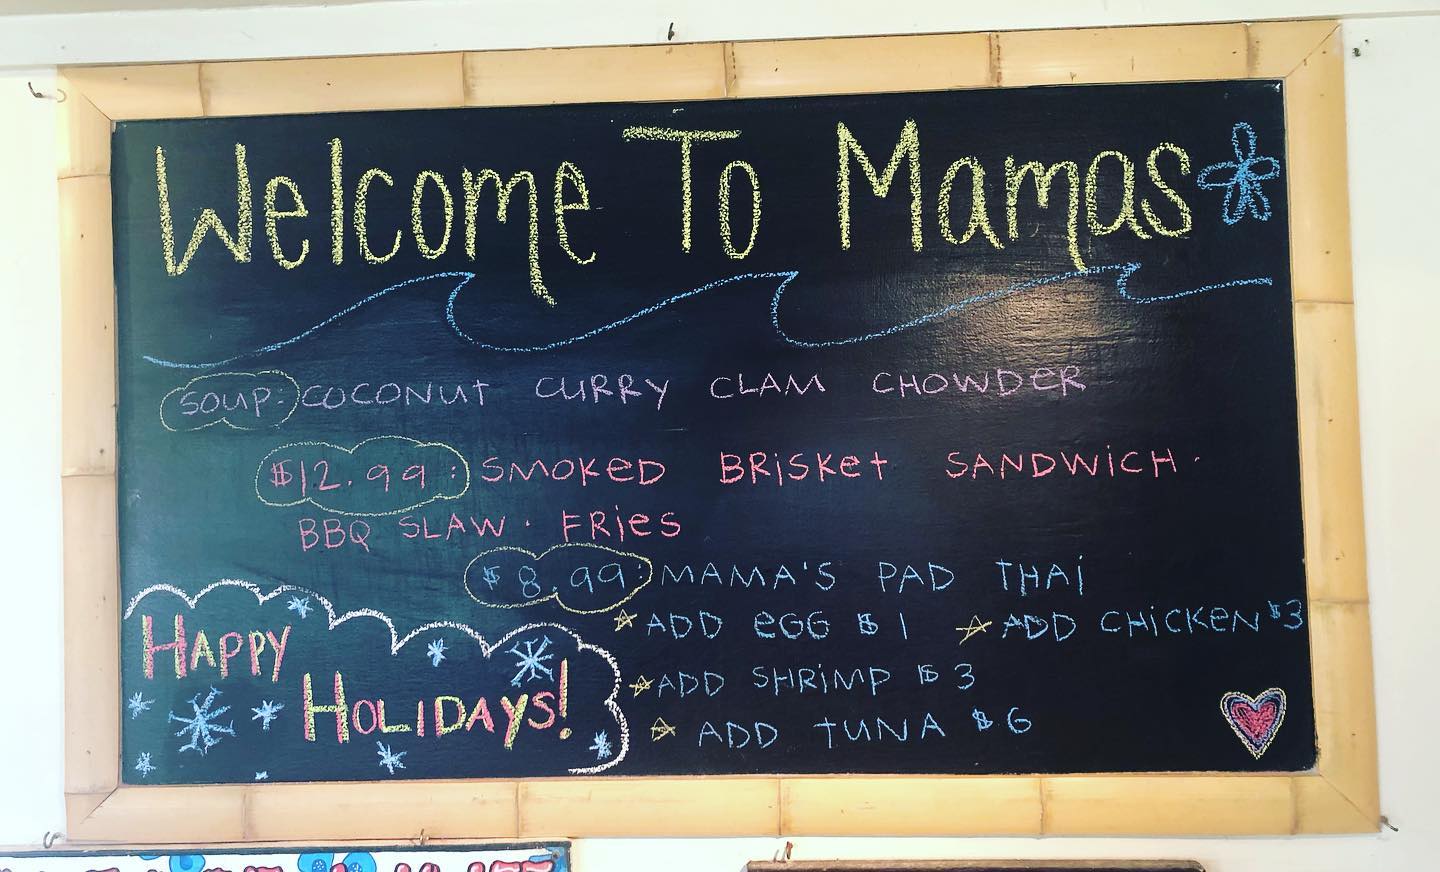 Welcome To Mamas
SOUP: COCONUT CURRY CLAM CHOWDER
$12.99: SMOKED BRISKET SANDWICH ·
BBQ SLAW · FRIES
$8.99: MAMA'S PAD THAI
ADD EGG $1 ADD CHICKEN $3
ADD SHRIMP $3
ADD TUNA $6
HAPPY
HOLIDAYS!